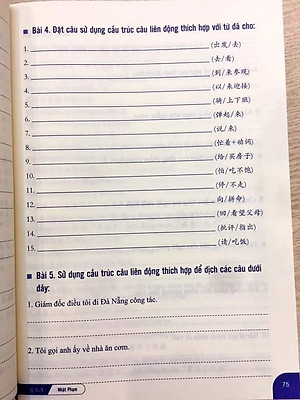 Bài 4. Đặt câu sử dụng cấu trúc câu liên động thích hợp với từ đã cho:
1. (出发/去)
2. (去/看)
3. (到/来参观)
4. (以/来迎接)
5. (骑/上下班)
6. (弹起/来)
7. (说/来)
8. (忙着+动词)
9. (给/买房子)
10. (怕/吃不饱)
11. (停/不走)
12. (向/耕申)
13. (回/看望父母)
14. (批评/指出)
15. (请/吃饭)
Bài 5. Sử dụng cấu trúc câu liên động thích hợp để dịch các câu dưới
đây:
1. Giám đốc điều tôi đi Đà Nẵng công tác.
2. Tôi gọi anh ấy về nhà ăn cơm.
Nhật Phạm
75